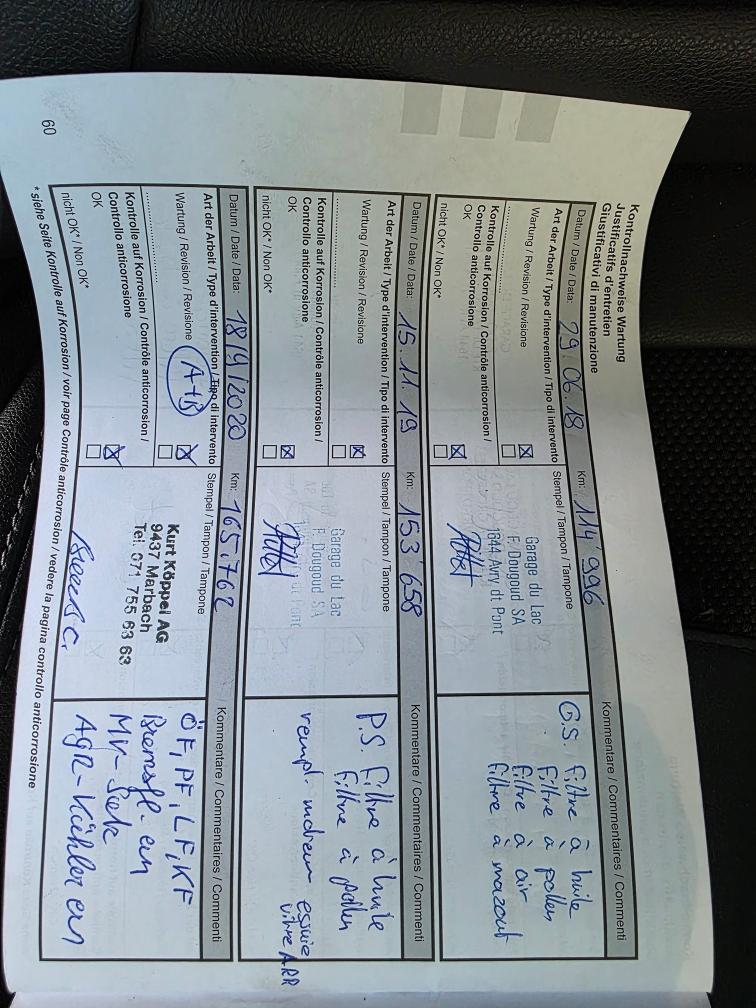 Kontrollnachweise Wartung
Justificatifs d'entretien
Giustificativi di manutenzione
Datum / Date / Data: 29.06.18 Km: 114'996 Kommentare / Commentaires / Commenti
Art der Arbeit / Type d'intervention / Tipo di intervento
Stempel / Tampon / Tampone
Wartung / Revision / Revisione
Kontrolle auf Korrosion / Contrôle anticorrosion /
Controllo anticorrosione
OK
nicht OK* / Non OK*
Garage du Lac
F. Dougoud SA
1644 Avry dt Pont
G.S. filtre à huile
filtre à pollen
filtre à air
filtre à mazout
Datum / Date / Data: 15.11.19 Km: 153'658 Kommentare / Commentaires / Commenti
Art der Arbeit / Type d'intervention / Tipo di intervento
Stempel / Tampon / Tampone
Wartung / Revision / Revisione
Kontrolle auf Korrosion / Contrôle anticorrosion /
Controllo anticorrosione
OK
nicht OK* / Non OK*
Garage du Lac
F. Dougoud SA
P.S. filtre à huile
filtre à pollen
rempl. moteur essuie
vitre ARR
Datum / Date / Data: 18/9/2020 Km: 165.762 Kommentare / Commentaires / Commenti
Art der Arbeit / Type d'intervention / Tipo di intervento
Stempel / Tampon / Tampone
Wartung / Revision / Revisione A+B
Kontrolle auf Korrosion / Contrôle anticorrosion /
Controllo anticorrosione
OK
nicht OK* / Non OK*
Kurt Köppel AG
9437 Marbach
Tel. 071 755 63 63
ÖF, PF, LF, KF
Bremsfl. ern
AGR-Kühler ern
* siehe Seite Kontrolle auf Korrosion / voir page Contrôle anticorrosion / vedere la pagina controllo anticorrosione
60